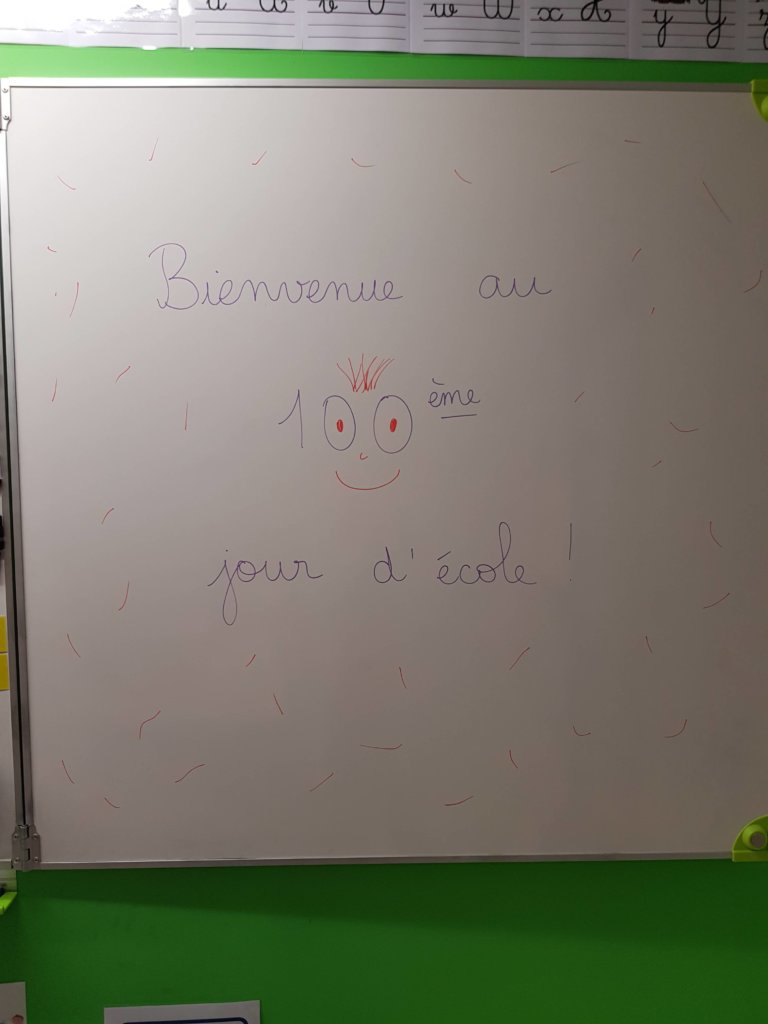 u U v V w W x X y Y z
Bienvenue au
100ème
jour d'école !